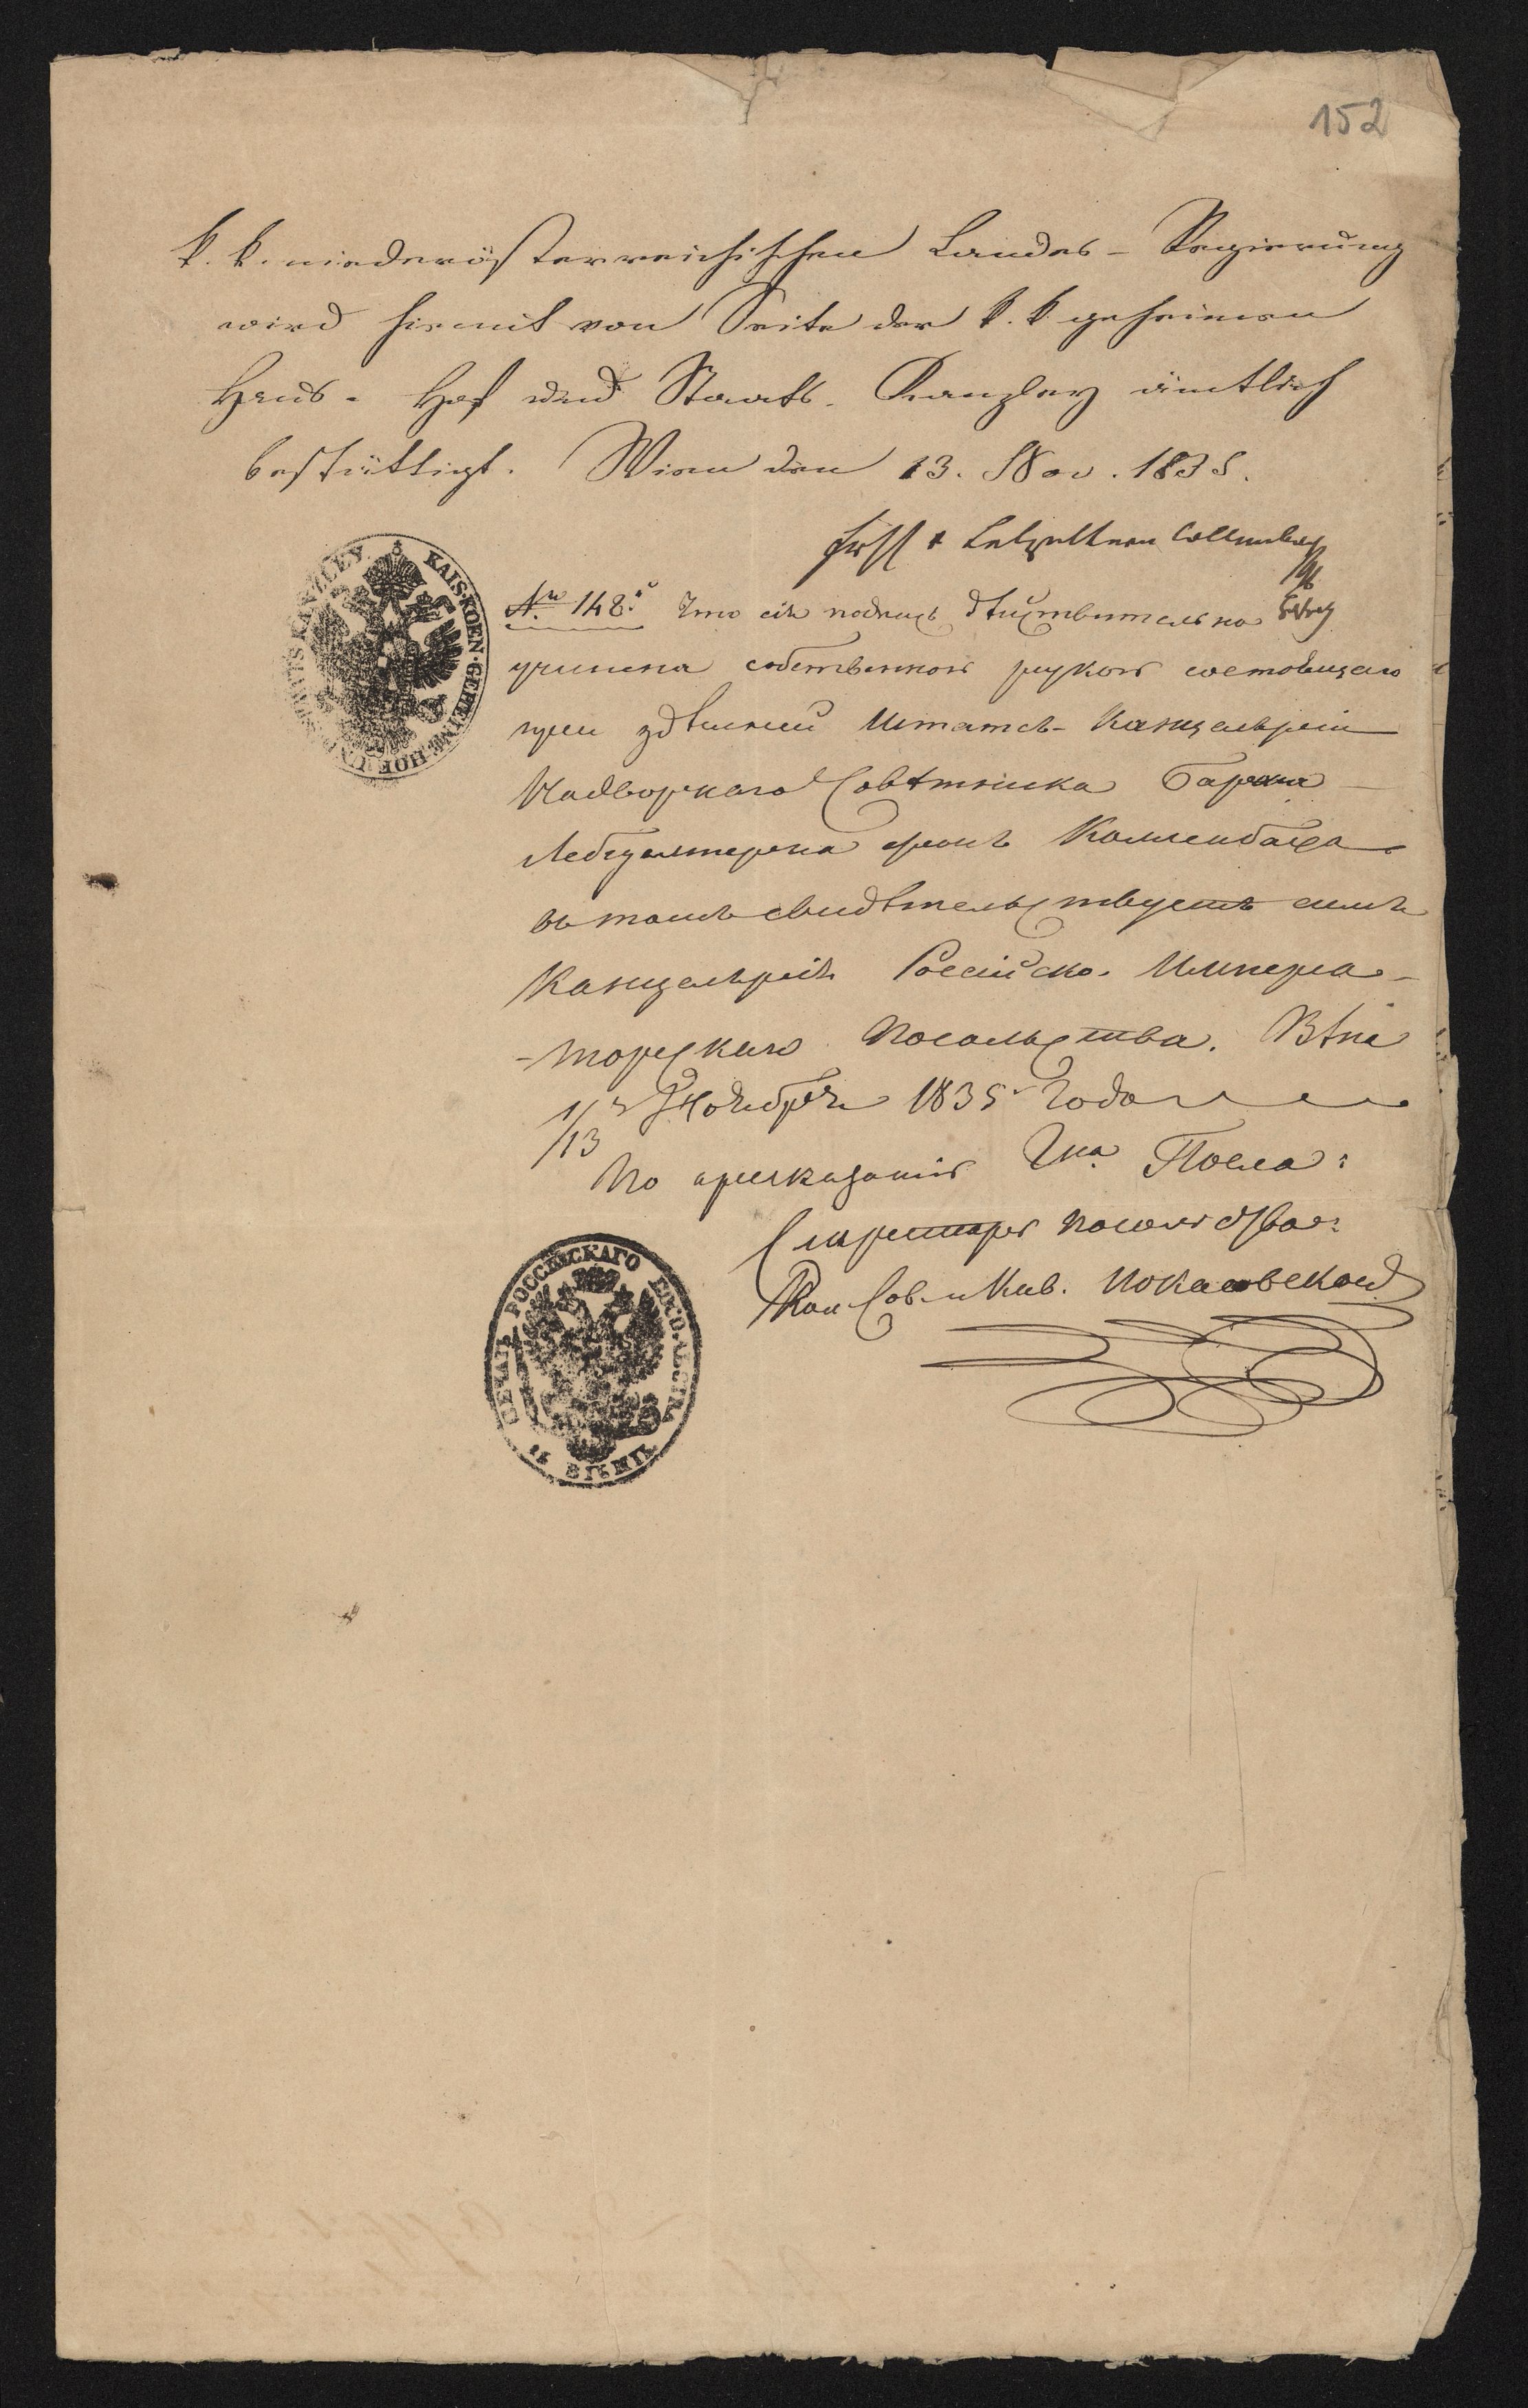 152
k. k. niederösterreichischen Landes-Regierung
wird hiemit von Seite der k. k. geheimen
Haus- Hof und Staats-Kanzley ämtlich
bestättigt. Wien den 13. Nov. 1835.
Lebzeltern Collenbach
KAIS·KOEN·GEHEIME·HOF
KANZLEY
№ 148. Что сія подпись дѣйствительно
учинена собственною рукою состоящаго
при здѣшней Штатсъ-Канцеляріи
Надворнаго Совѣтника Барона
Лебцелтерна фонъ Колленбаха
въ томъ свидѣтельствуетъ симъ
Канцелярія Россійско-Импера-
-торскаго Посольства. Вѣна
1/13 Ноября 1835 Года
По приказанію Гна Посла:
Секретарь Посольства:
Кол. Сов. и Кав.
ПЕЧАТЬ РОССІЙСКАГО
ВЪ ВѢНѢ